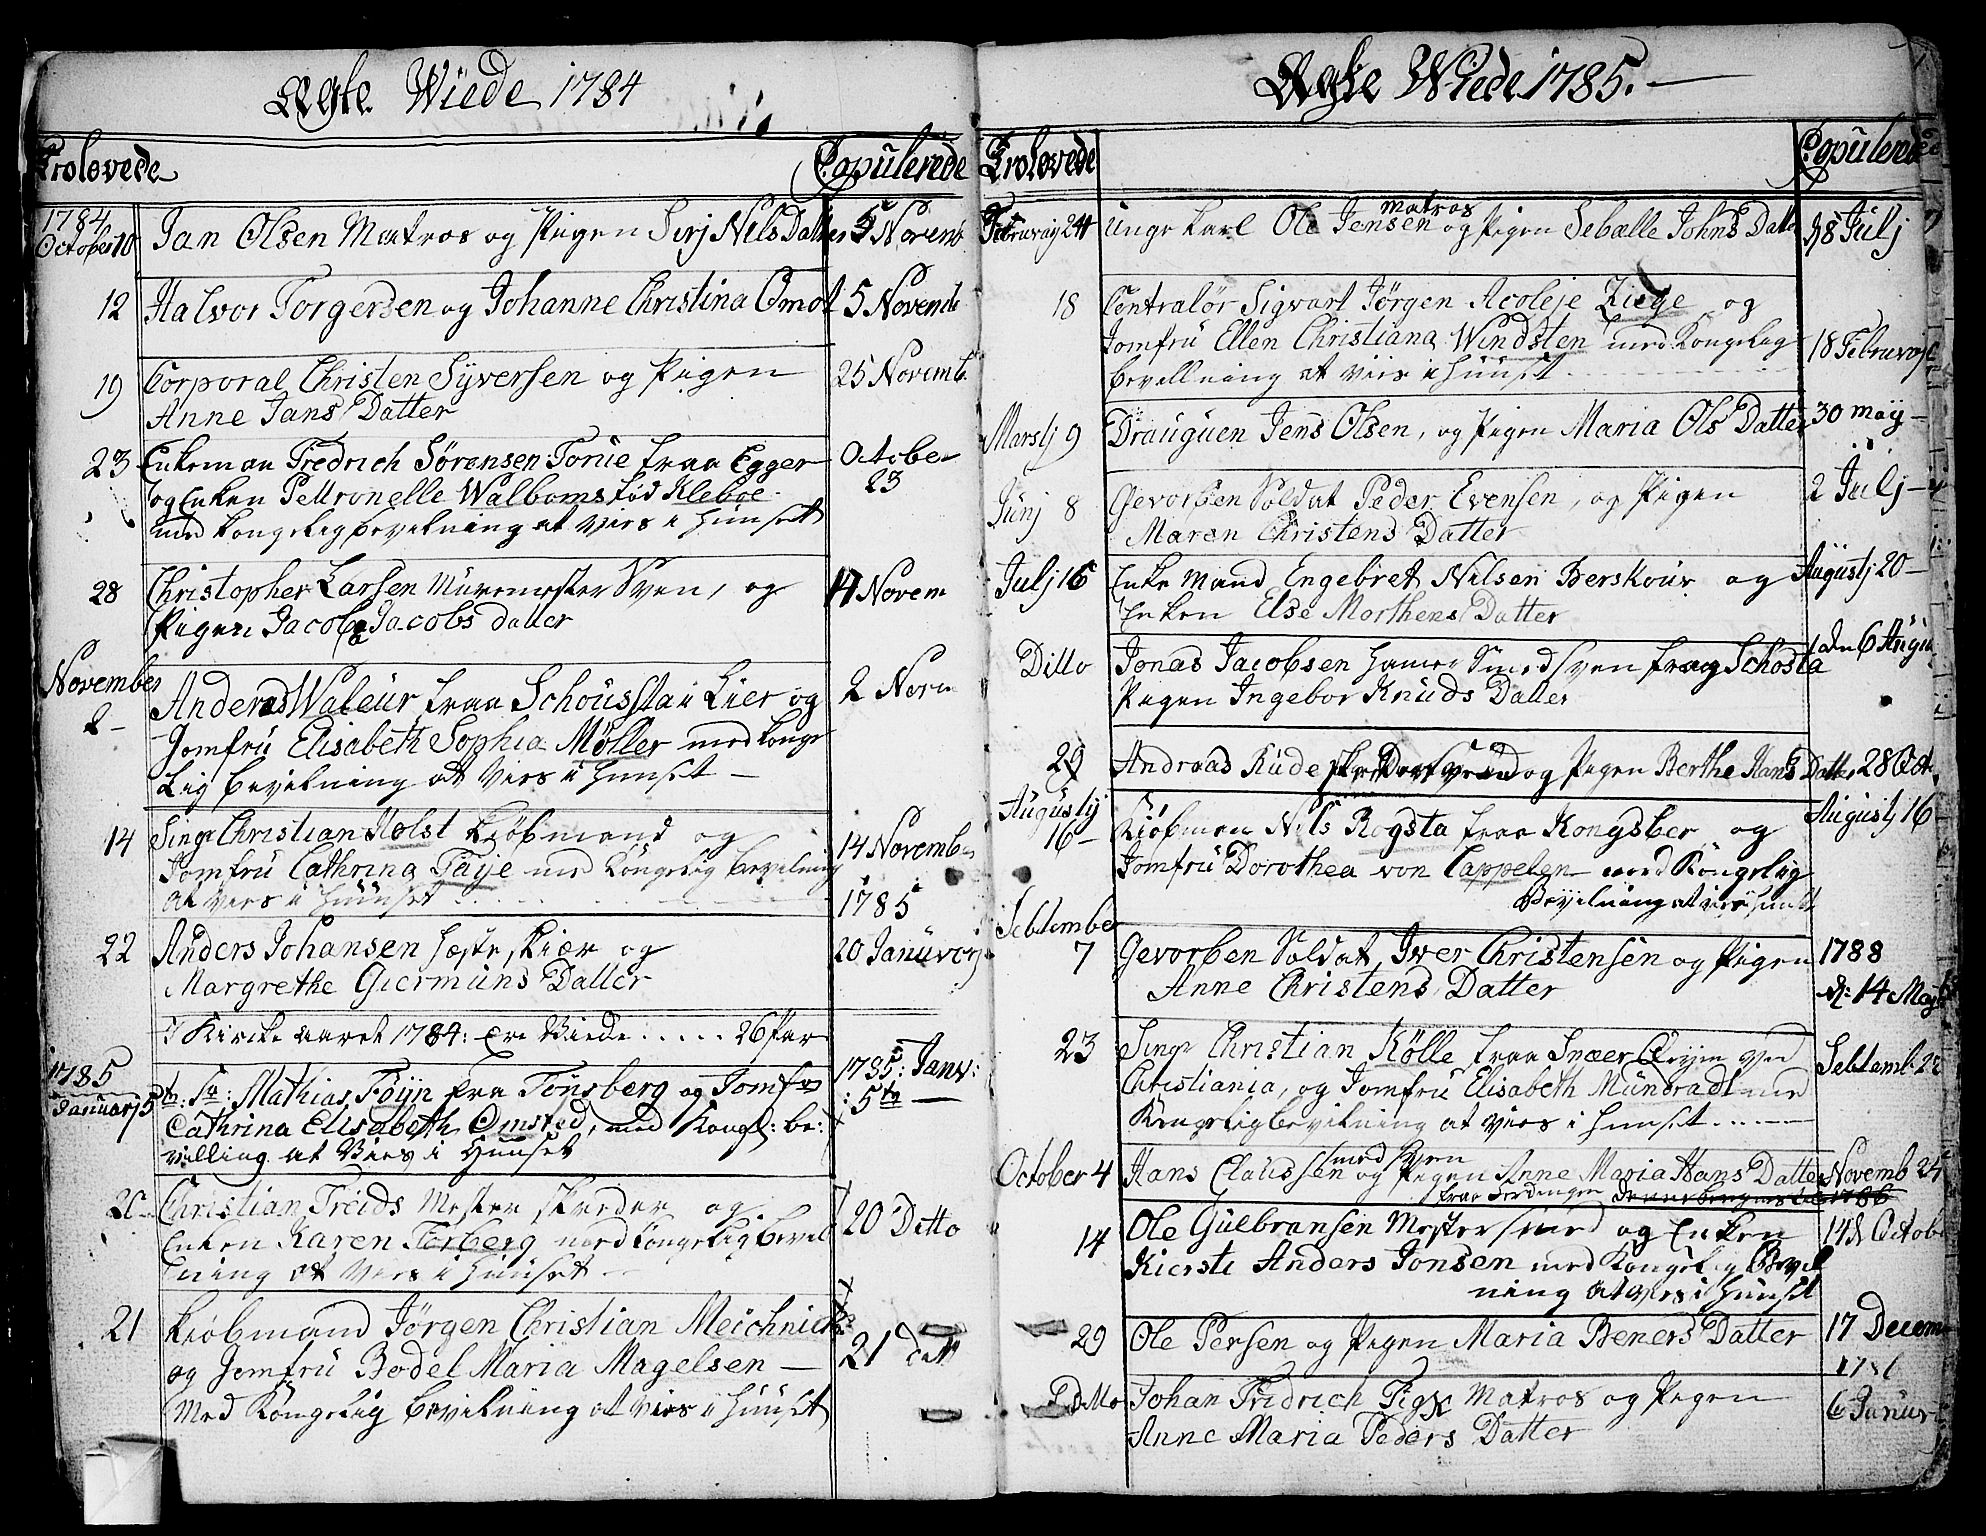 Ægte Wiede 1784
Troløvede
Copulerede
1784
October 10
Jan Olsen Matros og Pigen Sirj Nils Datter
5 Novemb
12
Halvor Torgersen og Johanne Christina Omot
5 Novemb
19
Corporal Christen Syversen og Pigen
Anne Jans Datter
25 Novemb
23
Enkeman Fredrich Sørensen Torue fraa Egger
og Enken Pettronelle Walboms fød Kleboe
med Kongelig bevilning at vies i Huuset
October
23
28
Christopher Larsen Muremester Sven, og
Pigen Jacobe Jacobs datter
17 Novem
November
2
Anders Waleur fraa Schoussta i Lier og
Jomfru Elisabeth Sophia Møller med Konge
Lig bevilning at vies i Huuset
2 Novem
14
Singr Christian Holst Kiøbmand og
Jomfru Cathrina Faye med Kongelig bevilning
at vies i Huuset
14 Novemb
1785
22
Anders Johansen Hæste skiær og
Margrethe Giermuns Datter
20 Januvarj
I Kircke aaret 1784: Ere Viede ..... 26 Par
1785
Januarj 5
Sr: Mathias Føyn fra Tønsberg og Jomfr
Cathrina Elisabeth Omsted, med Kongl: be:
villing at Vies i Huuset
1785: Janv:
: 5te
20
Christian Treids Mester skreder og
Enken Karen Torberg med Kongelig bevil
ning at vies i Huuset
20 Ditto
21
Kiøbmand Jørgen Christian Meichnich
og Jomfru Bodel Maria Magelsen
Med Kongelig bevilning at vies i Huuset
21 dito
Ægte Wiede 1785.
Troløvede
Copulerede
Februvarj 24
Unge Karl Ole Jensen matros og Pigen Sebælle Johns Datter
28 Julj
18
Contralør Sigvart Jørgen Acoleje Ziege og
Jomfru Ellen Christiana Windsten med Kongelig
bevellning at vies i Huuset
18 Februvarj
Marsij 9
Drauguen Jens Olsen, og Pigen Maria Ols Datter
30 may
Junj 8
Gevorben Soldat Peder Evensen, og Pigen
Maren Christens Datter
2 Julj
Julj 16
Enke Mand Engebret Nilsen Berskour og
Enken Else Morthens Datter
Augustj 20
Ditto
Jonas Jacobsen Hamer Smed Sven fra Schosta
Pigen Ingebor Knuds Datter
den 6 Augu
29
Andreas Rude og Pigen Berthe Hans Datter
28 Oct
Augustij
16
Kiøbman Nils Rogsta fraa Kongsber og
Jomfru Dorothea von Cappelen med Kongelig
Bevilning at vies i Huuset
Augustj 16
Sebtember
7
Gevorben Soldat Iver Christensen og Pigen
Anne Christens Datter
1788
d: 14 Maj
23
Singr Christian Kølle fraa ved
Christiania, og Jomfru Elisabeth Mundradt med
Kongelig bevilning at vies i Huuset
Sebtemb 23
October 4
smed Sven
Hans Claussen og Pigen Anne Maria Hans Datter
Novemb 24
1786
14
Ole Gulbransen Mester smed og Enken
Kiersti Anders Jonsen med Kongelig Bevil
ning at vies i Huuset
14 d October
29
Ole Persen og Pigen Maria Beners Datter
17 Decem
Ditto
Johan Fridrich Matros og Pigen
Anne Maria Peders Datter
6 Januvr